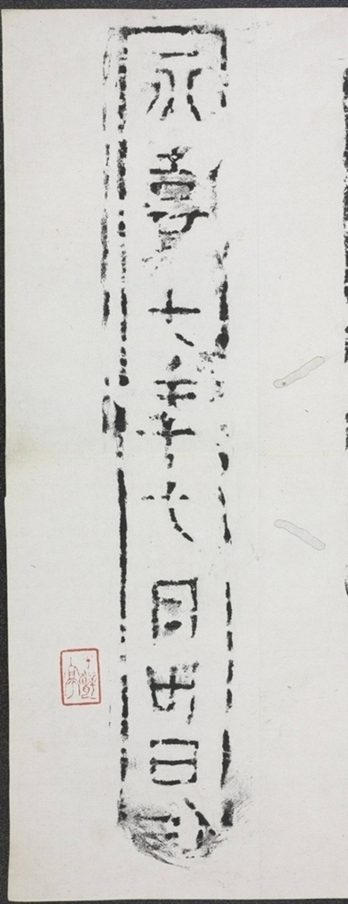 永嘉七年七月廿日